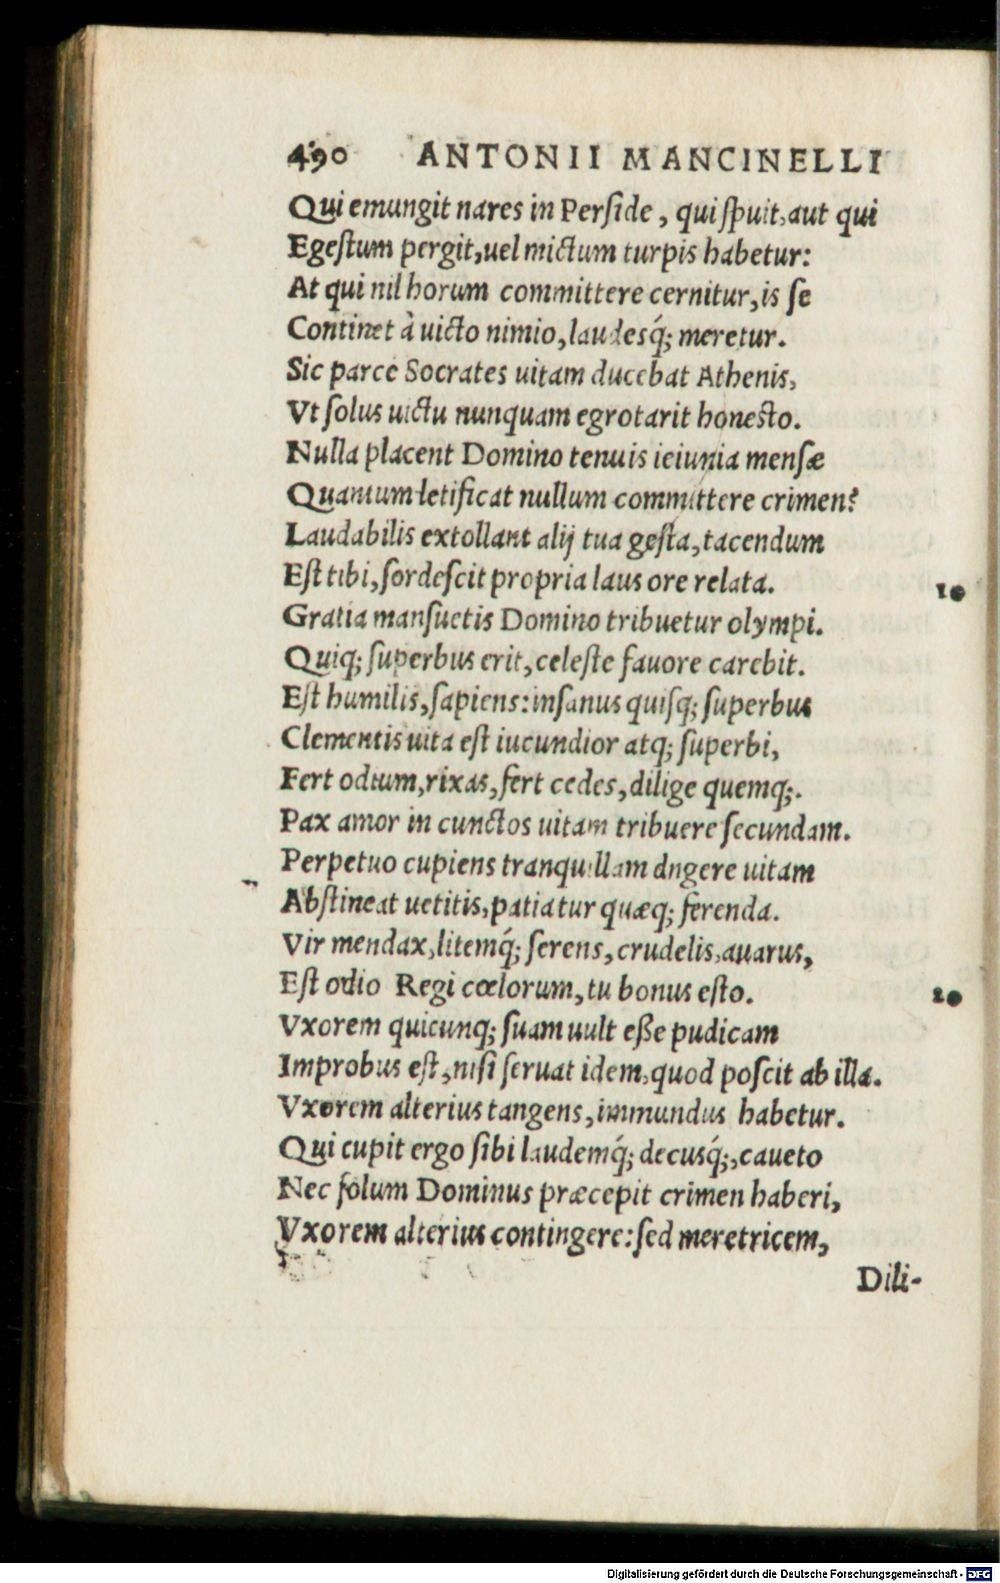 490 ANTONII MANCINELLI
Qui emungit nares in Perſide, qui ſpuit, aut qui
Egeſtum pergit, uel mictum turpis habetur:
At qui nil horum committere cernitur, is ſe
Continet à uicto nimio, laudesq́; meretur.
Sic parce Socrates uitam ducebat Athenis,
Vt ſolus uictu nunquam egrotarit honesto.
Nulla placent Domino tenuis ieiunia menſæ
Quantum letificat nullum committere crimen?
Laudabilis extollant alij tua geſta, tacendum
Eſt tibi, ſordeſcit propria laus ore relata.
10
Gratia manſuetis Domino tribuetur olympi.
Quiq; ſuperbus erit, celeſte fauore carebit.
Eſt humilis, ſapiens: inſanus quiſq; ſuperbus
Clementis uita eſt iucundior atq; ſuperbi,
Fert odium, rixas, fert cedes, dilige quemq;.
Pax amor in cunctos uitam tribuere ſecundam.
Perpetuo cupiens tranquillam dugere uitam
Abſtineat uetitis, patiatur quæq; ferenda.
Vir mendax, litemq́; ſerens, crudelis, auarus,
Eſt odio Regi cœlorum, tu bonus eſto.
20
Vxorem quicunq; ſuam uult eße pudicam
Improbus eſt, niſi ſeruat idem, quod poſcit ab illa.
Vxorem alterius tangens, immundus habetur.
Qui cupit ergo ſibi laudemq́; decusq́;, caueto
Nec ſolum Dominus præcepit crimen haberi,
Vxorem alterius contingere: ſed meretricem,
Dili-
Digitalisierung gefördert durch die Deutsche Forschungsgemeinschaft - DFG